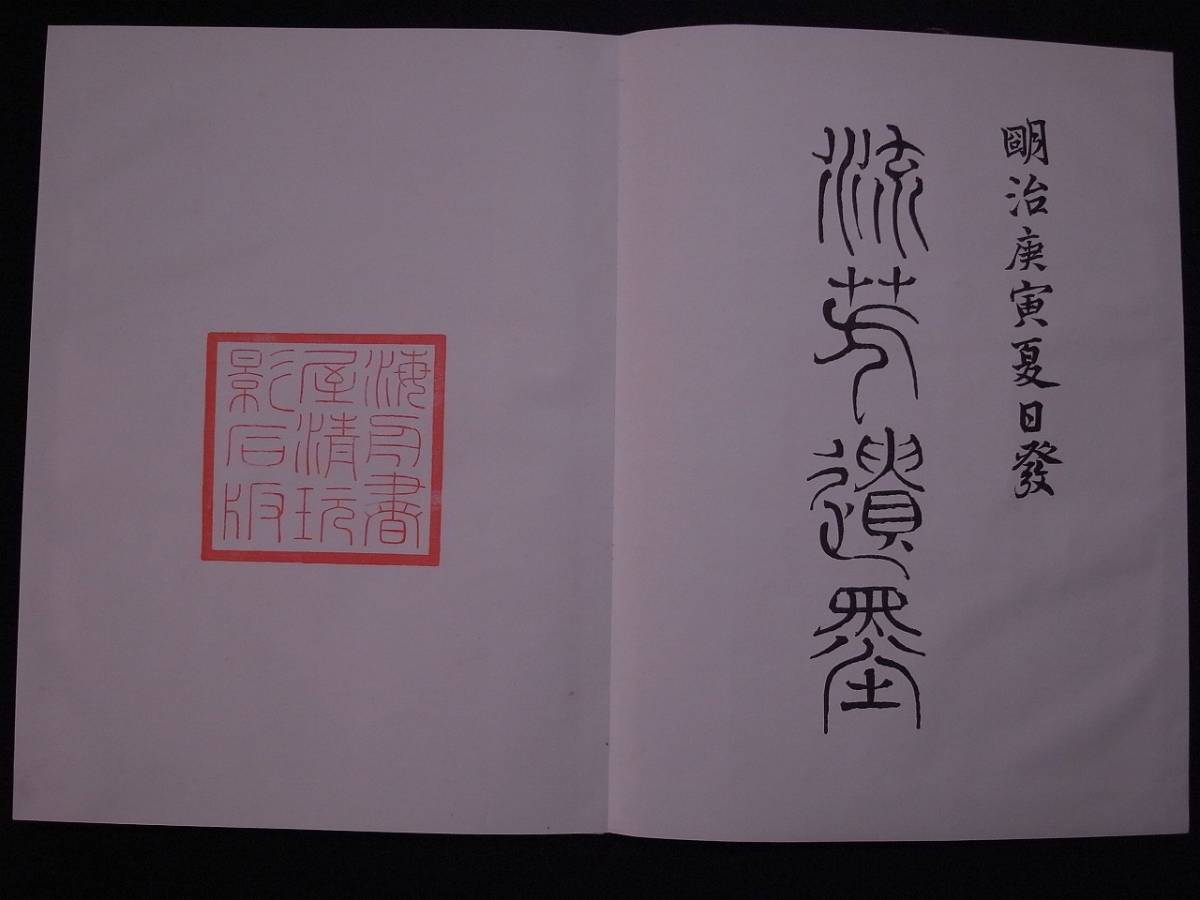 明治庚寅夏日發
流芳遺墨
海月書
屋清玩
影石版